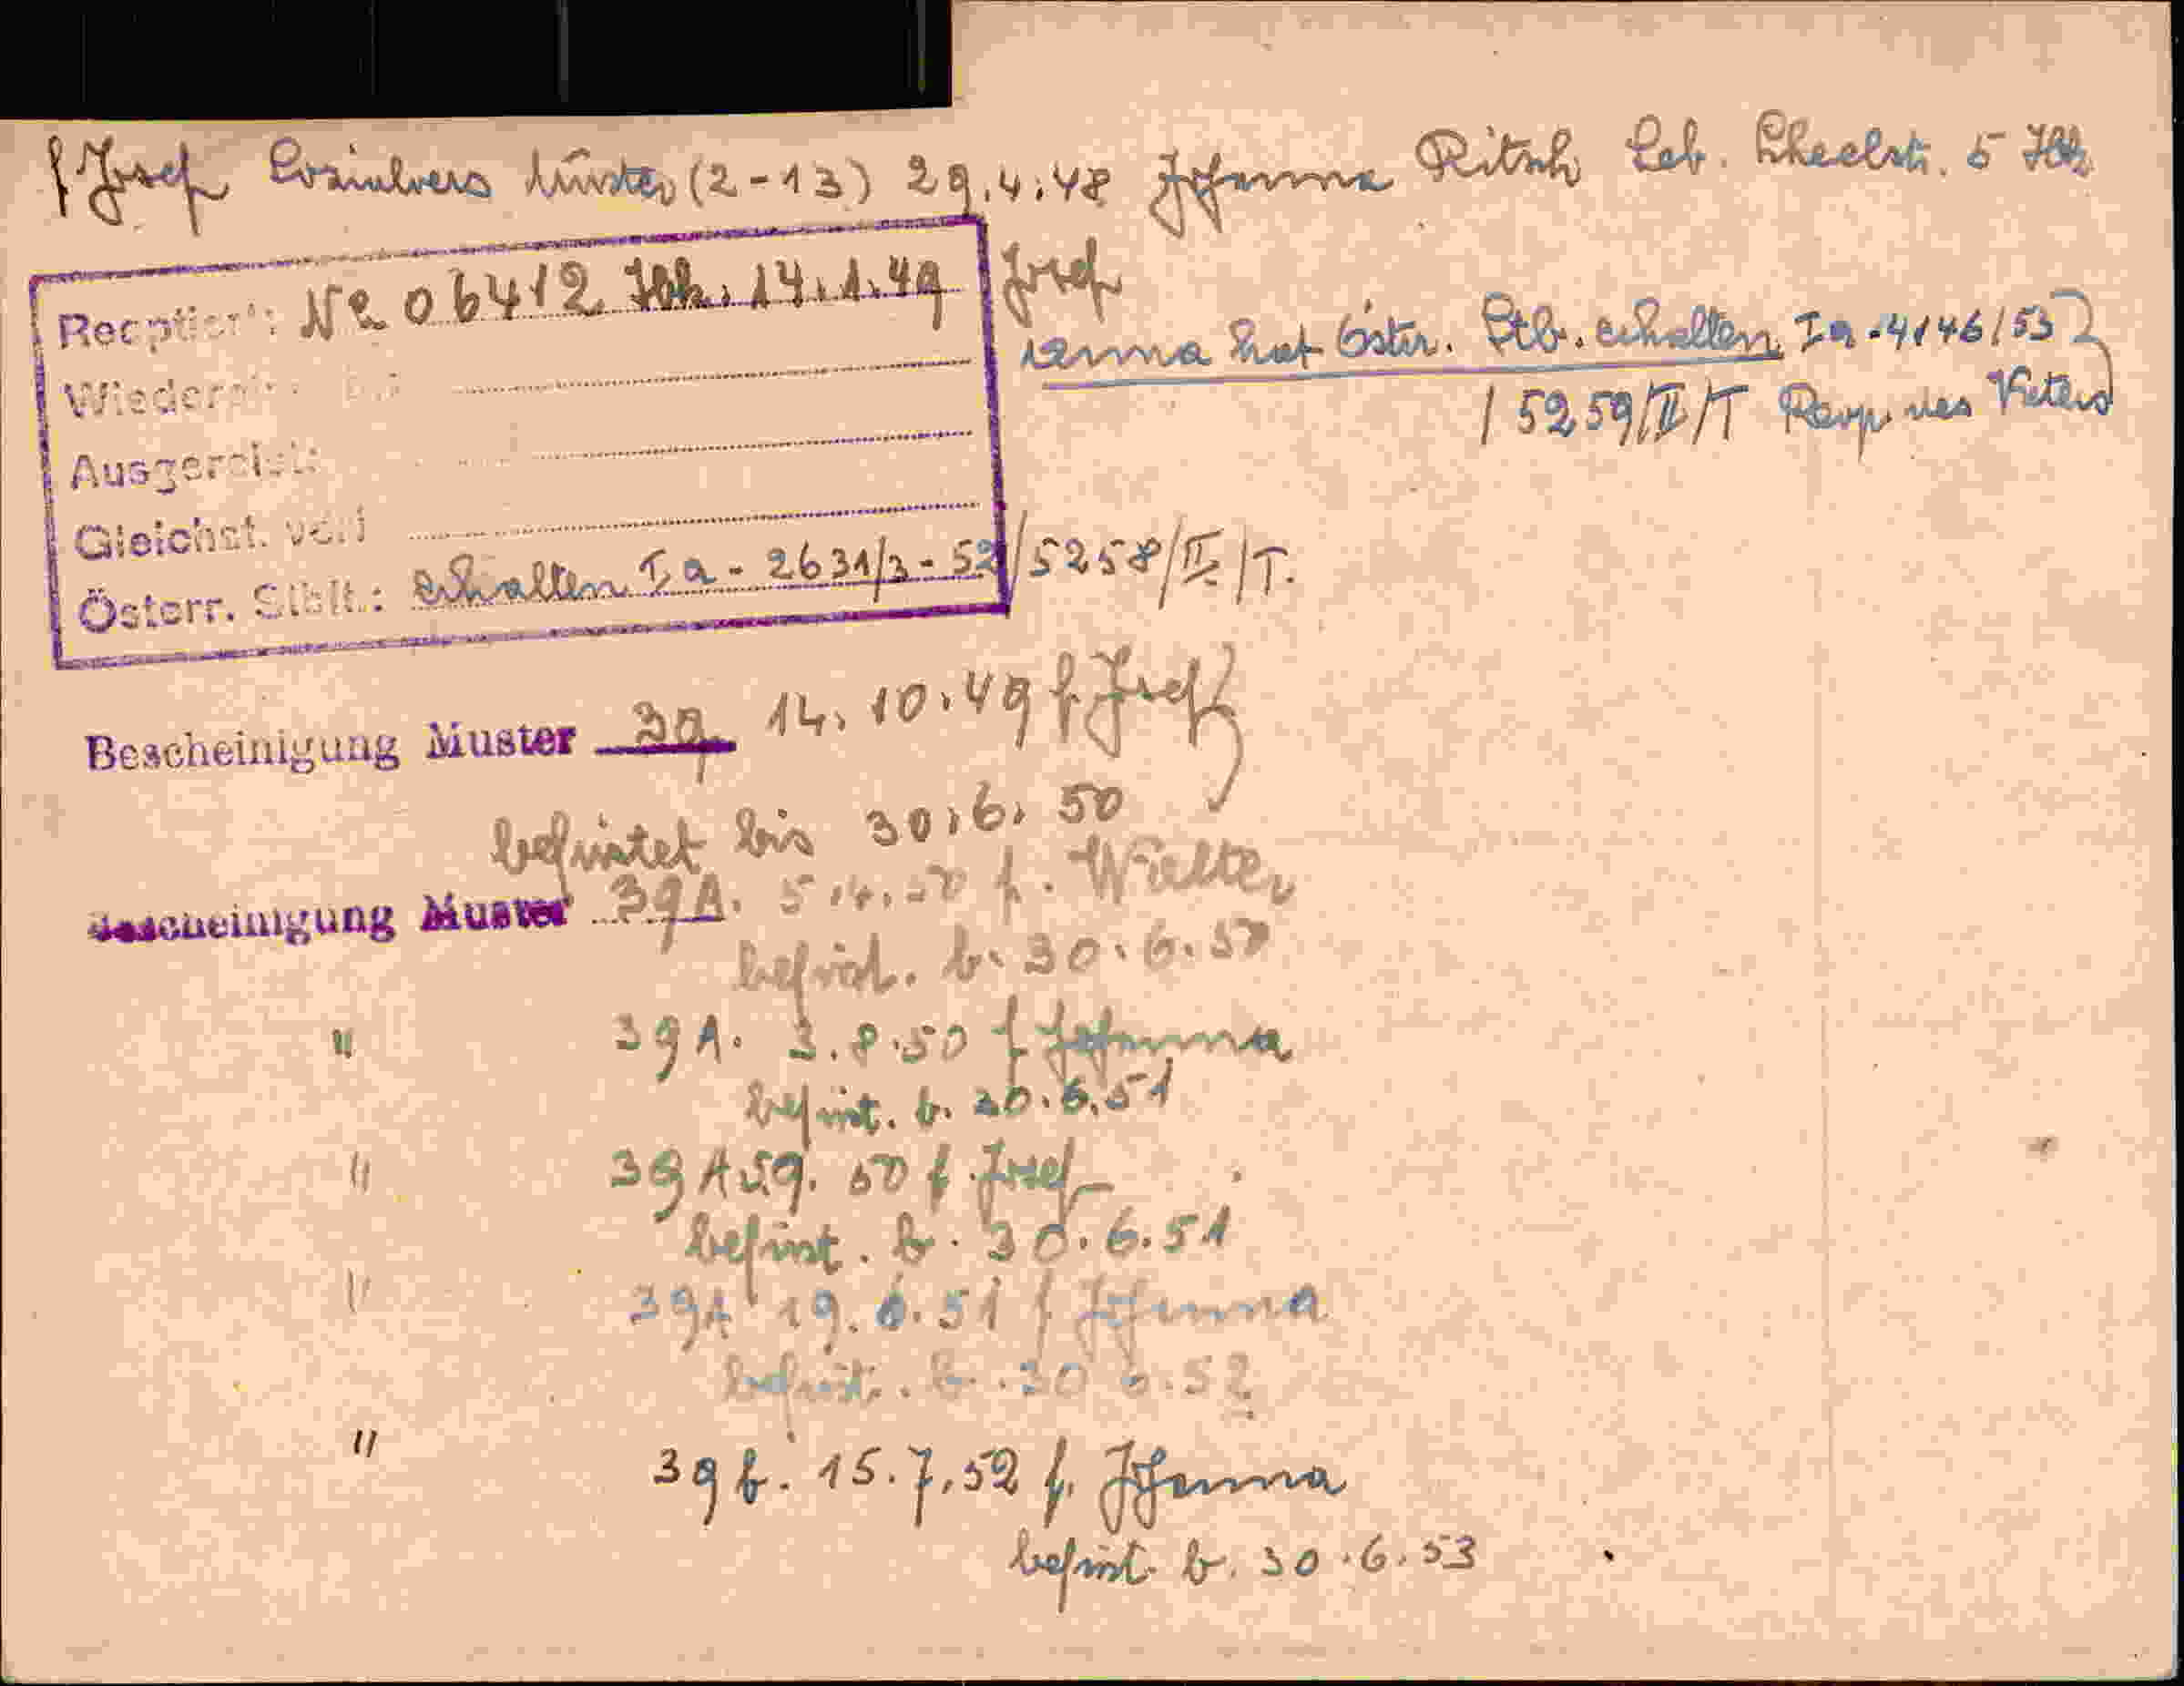 f Josef Muster (2-13) 29.4.48 Johanna Ritsch Leb. 5 Ibk
Reoption: № 06412 Ibk. 14.1.49 Josef
Wiedereinb.:
hat Österr. Stb. erhalten Ia-4146/53
/5259/II/T des Vaters
Ausgereist:
Gleichst. verl
Österr. Stblt.: erhalten Ia-2631/3-52/5258/II/T.
Bescheinigung Muster 39 14.10.49 f. Josef
befristet bis 30.6.50
Bescheinigung Muster 39A. f. Walter
befrist. b. 30.6.50
" 39A. 3.8.50 f Johanna
befrist. b. 30.6.51
" 39A 5.9.50 f. Josef
befrist. b. 30.6.51
" 39A 19.6.51 f Johanna
befrist. b. 30.6.52
" 39 b. 15.7.52 f. Johanna
befrist. b. 30.6.53